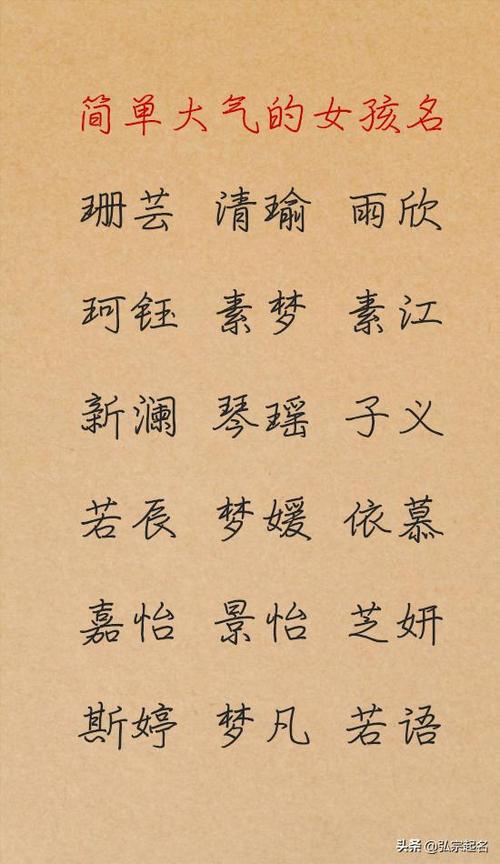 简单大气的女孩名
珊芸 清瑜 雨欣
珂钰 素梦 素江
新澜 琴瑶 子义
若辰 梦媛 依慕
嘉怡 景怡 芝妍
斯婷 梦凡 若语
头条 @弘宗起名